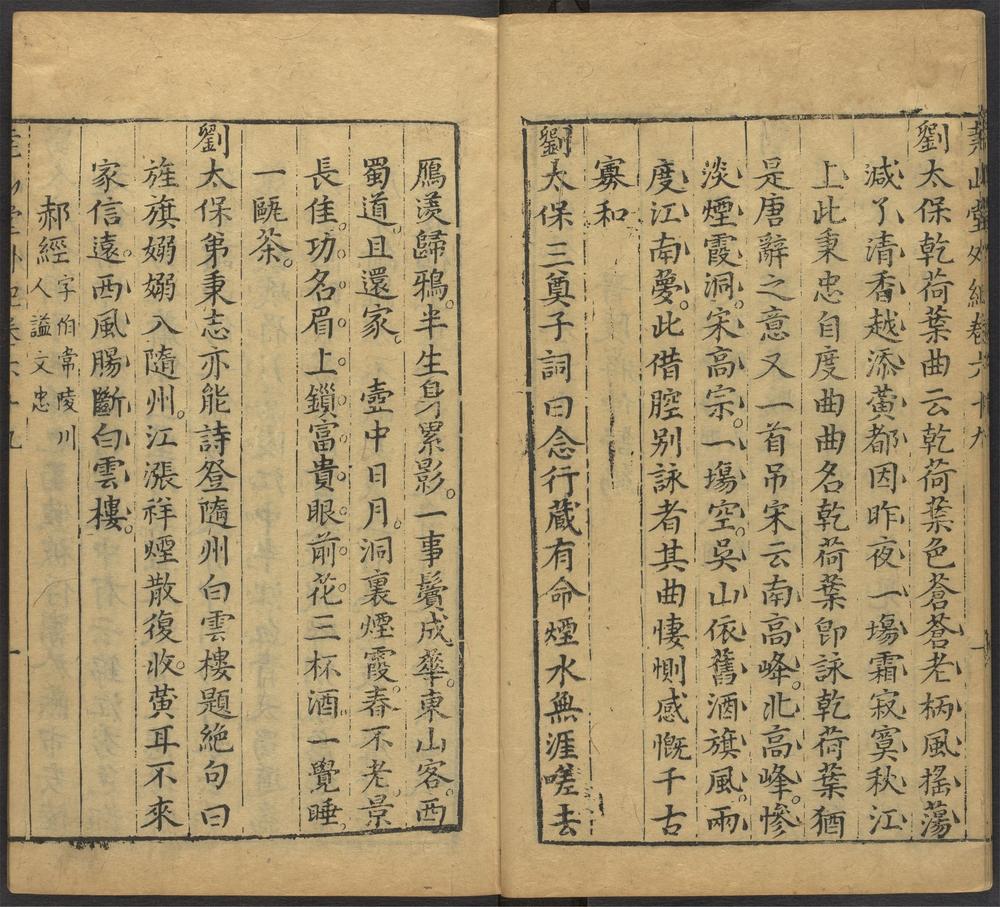 堯山堂外紀卷六十九
劉太保乾荷葉曲云乾荷葉色蒼蒼老柄風搖蕩
減了清香越添黃都因昨夜一場霜寂寞秋江
上此秉忠自度曲曲名乾荷葉卽詠乾荷葉猶
是唐辭之意又一首吊宋云南高峰。北高峰。慘
淡煙霞洞。宋高宗。一塲空。吳山依舊酒旗風。兩
度江南夢。此借腔別詠者其曲悽惻感慨千古
寡和
劉太保三奠子詞曰念行藏有命煙水無涯嗟去
鴈羡歸鴉。半生身累影。一事鬢成華。東山客。西
蜀道。且還家。　壼中日月。洞裏煙霞。春不老。景
長佳。功名眉上鎖。富貴眼前花。三杯酒。一覺睡。
一甌茶。
劉太保弟秉志亦能詩登隨州白雲樓題絶句曰
旌旗嫋嫋入隨州。江漲祥煙散復收。黃耳不來
家信遠。西風腸斷白雲樓。
郝經字伯常陵川人謚文忠